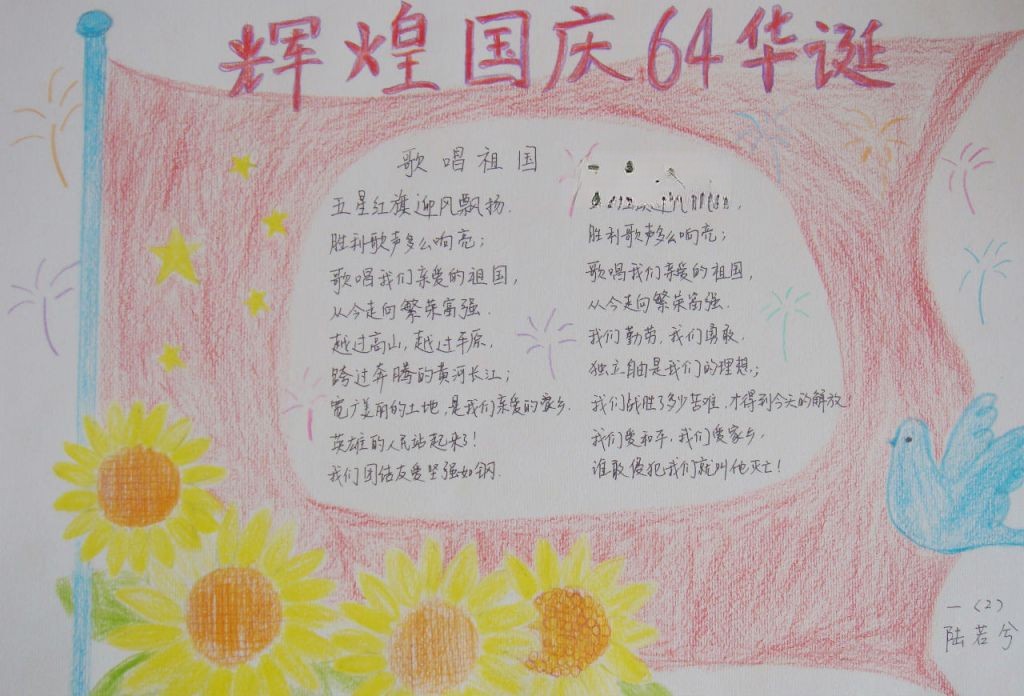 辉煌国庆64华诞
歌唱祖国
五星红旗迎风飘扬.
胜利歌声多么响亮;
歌唱我们亲爱的祖国,
从今走向繁荣富强.
越过高山,越过平原,
跨过奔腾的黄河长江;
宽广美丽的土地,是我们亲爱的家乡.
英雄的人民站起来了!
我们团结友爱坚强如钢.
胜利歌声多么响亮;
歌唱我们亲爱的祖国,
从今走向繁荣富强.
我们勤劳,我们勇敢.
独立自由是我们的理想.;
我们战胜了多少苦难.才得到今天的解放!
我们爱和平,我们爱家乡,
谁敢侵犯我们就叫他灭亡!
一(2)
陆若兮